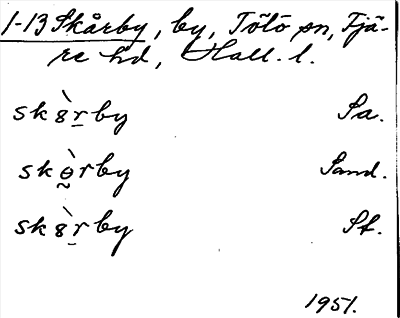 1-13 Skårby, by, Tölö sn, Fjä-
re hd, Hall. l.
sk8̀ṟby Sa.
skɵ̰̀rby Sand.
sk8̀ṟby St.
1951.